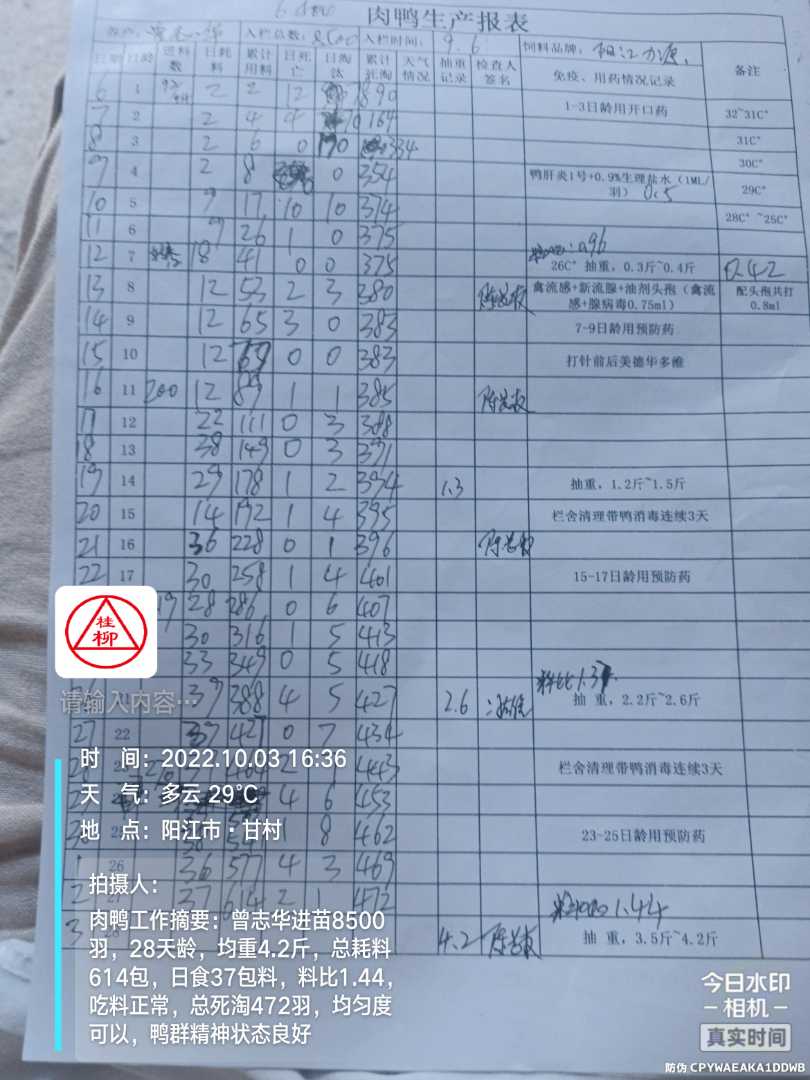 肉鸭生产报表
入栏总数: 8500 入栏时间: 9.6. 饲料品牌:
日期 日龄 进料数 日耗料 累计用料 日死亡 日淘汰 累计死淘 天气情况 抽重记录 检查人签名 免疫、用药情况记录 备注
6 1 2 2 12
7 2 2 4 4 164 1-3日龄用开口药 32~31C°
8 3 2 6 0 190 334 31C°
9 4 2 8 0 354 30C°
鸭肝炎1号+0.9%生理盐水（1ML/羽） 0.5 29C°
10 5 9 17 10 10 374 28C°~25C°
11 6 9 26 1 0 375
12 7 18 41 0 0 375 26C° 抽重，0.3斤~0.4斤 0.42
13 8 12 53 2 3 380 禽流感+新流腺+油剂头孢（禽流感+腺病毒0.75ml） 配头孢共打0.8ml
14 9 12 65 3 0 383 7-9日龄用预防药
15 10 12 0 0 383 打针前后美德华多维
16 11 200 12 89 1 1 385
17 12 22 111 0 3 388
18 13 38 149 0 3 391
19 14 29 178 1 2 394 1.3 抽重，1.2斤~1.5斤
20 15 14 192 1 4 395 栏舍清理带鸭消毒连续3天
21 16 36 228 0 1 396
22 17 30 258 1 4 401 15-17日龄用预防药
28 286 0 6 407
30 316 1 5 413
33 349 0 5 418
料比1.37
39 388 4 5 427 2.6 抽 重，2.2斤~2.6斤
27 22 427 0 7 434
443 栏舍清理带鸭消毒连续3天
4 6 453
8 462 23-25日龄用预防药
1 26 36 577 4 3 469
2 27 37 614 2 1 472
1.44
3 28 4.2 抽 重，3.5斤~4.2斤
桂柳
请输入内容…
时 间：2022.10.03 16:36
天 气：多云 29℃
地 点：阳江市·甘村
拍摄人：
肉鸭工作摘要：曾志华进苗8500
羽，28天龄，均重4.2斤，总耗料
614包，日食37包料，料比1.44，
吃料正常，总死淘472羽，均匀度
可以，鸭群精神状态良好
今日水印
相机
真实时间
防伪 CPYWAEAKA1DDWB